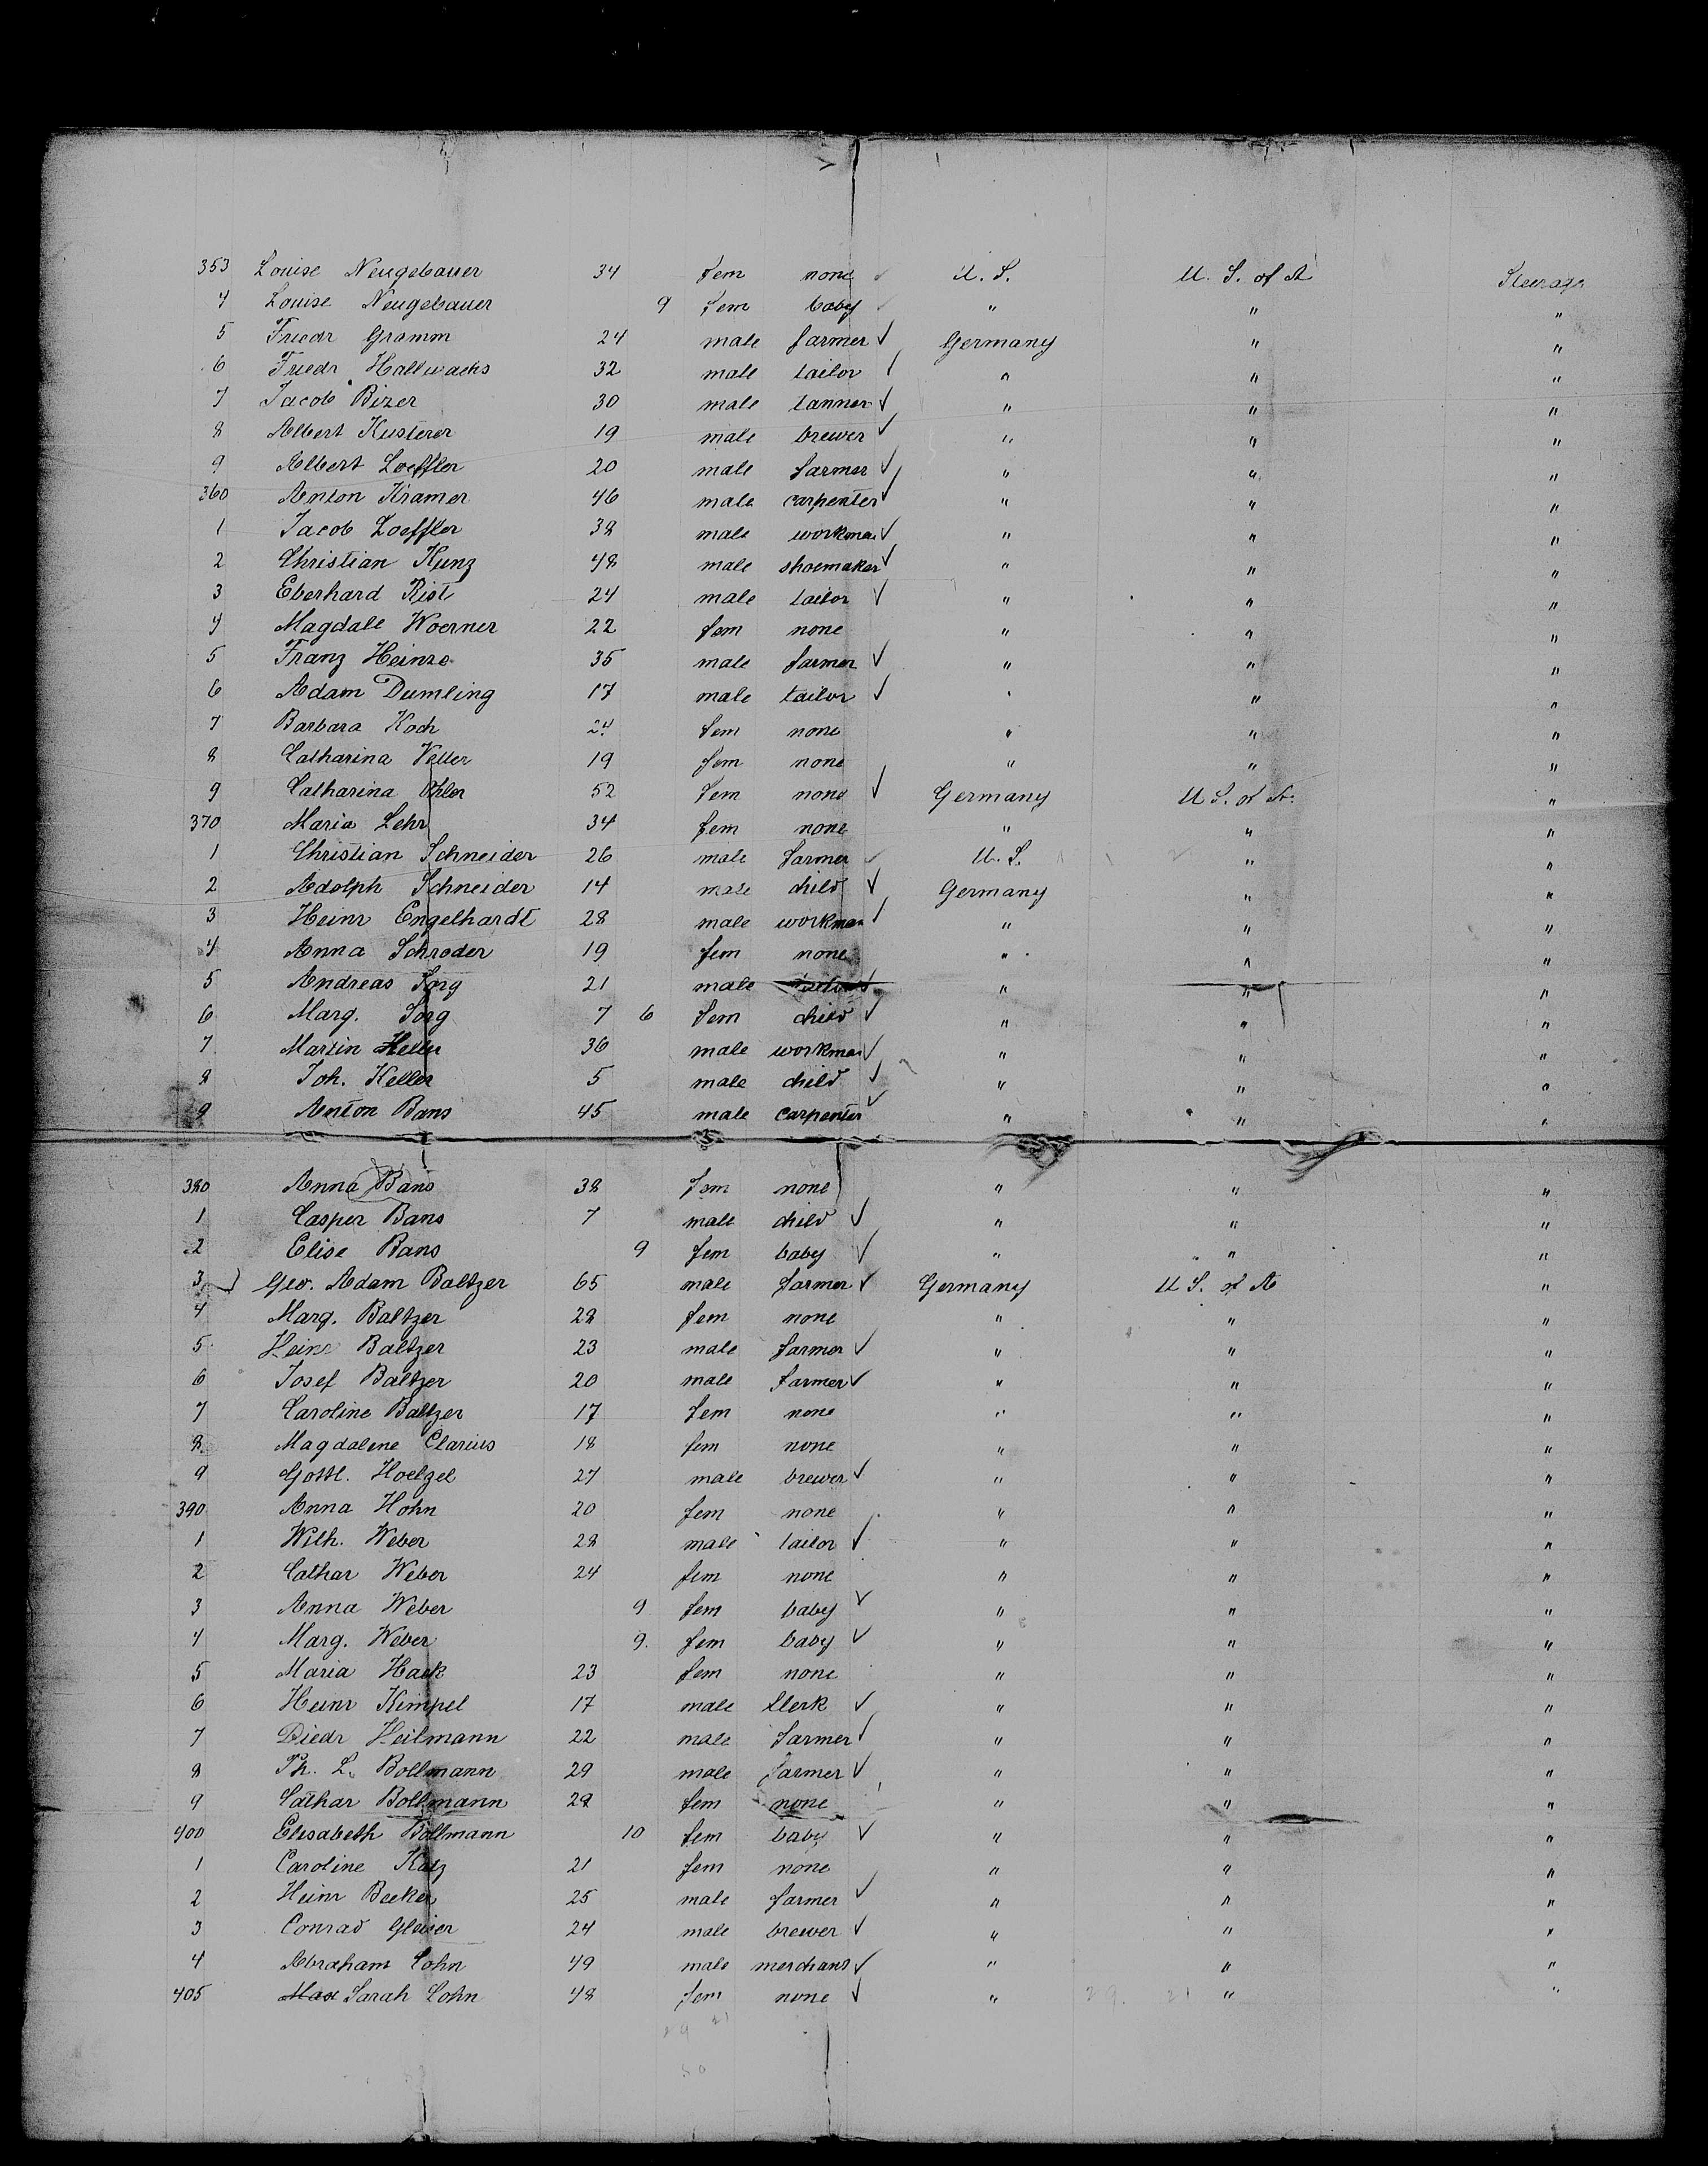 353 Louise Neugebauer 34 fem none U. S. U. S. of A Steerage
4 Louise Neugebauer 9 fem baby " " "
5 Friedr Gramm 24 male farmer ✓ Germany " "
6 Friedr Hallwachs 32 male tailor ✓ " " "
7 Jacob Bizer 30 male tanner ✓ " " "
8 Albert Kusterer 19 male brewer ✓ " " "
9 Albert Loeffler 20 male farmer ✓ " " "
360 Anton Kramer 46 male carpenter ✓ " " "
1 Jacob Loeffler 38 male workman ✓ " " "
2 Christian Kunz 48 male shoemaker ✓ " " "
3 Eberhard Rist 24 male tailor ✓ " " "
4 Magdale Woerner 22 fem none " " "
5 Franz Heinze 35 male farmer ✓ " " "
6 Adam Dumling 17 male tailor ✓ " " "
7 Barbara Koch 24 fem none " " "
8 Catharina Veller 19 fem none " " "
9 Catharina 52 fem none ✓ Germany U S. of A. "
370 Maria Lehr 34 fem none " " "
1 Christian Schneider 26 male farmer ✓ U. S. " "
2 Adolph Schneider 14 male child ✓ Germany " "
3 Heinr Engelhardt 28 male workman ✓ " " "
4 Anna Schroder 19 fem none " " "
5 Andreas Jorg 21 male " " "
6 Marg. Jorg 7 6 fem child ✓ " " "
7 Martin 36 male workman ✓ " " "
8 Joh. Keller 5 male child ✓ " " "
9 Anton Bans 45 male carpenter ✓ " " "
380 Anna Bans 38 fem none " " "
1 Casper Bans 7 male child ✓ " " "
2 Elise Bans 9 fem baby ✓ " " "
3 Geo. Adam Baltzer 65 male farmer ✓ Germany U S. of A "
4 Marg. Baltzer 28 fem none " " "
5 Heinr Baltzer 23 male farmer ✓ " " "
6 Josef Baltzer 20 male farmer ✓ " " "
7 Caroline Baltzer 17 fem none " " "
8 Magdalene Clarius 18 fem none " " "
9 Gottl. Hoelzel 27 male brewer ✓ " " "
390 Anna Hohn 20 fem none " " "
1 Wilh. Weber 28 male tailor ✓ " " "
2 Cathar Weber 24 fem none " " "
3 Anna Weber 9 fem baby ✓ " " "
4 Marg. Weber 9. fem baby ✓ " " "
5 Maria Hack 23 fem none " " "
6 Heinr Kimpel 17 male Clerk ✓ " " "
7 Diedr Heilmann 22 male farmer ✓ " " "
8 Ph. L. Bollmann 29 male farmer ✓ " " "
9 Cathar Bollmann 28 fem none " " "
400 Elisabeth Bollmann 10 fem baby ✓ " " "
1 Caroline Katz 21 fem none " " "
2 Heinr Becker 25 male farmer ✓ " " "
3 Conrad 24 male brewer ✓ " " "
4 Abraham Cohn 49 male merchant ✓ " " "
405 Max Sarah Cohn 48 fem none ✓ " " "